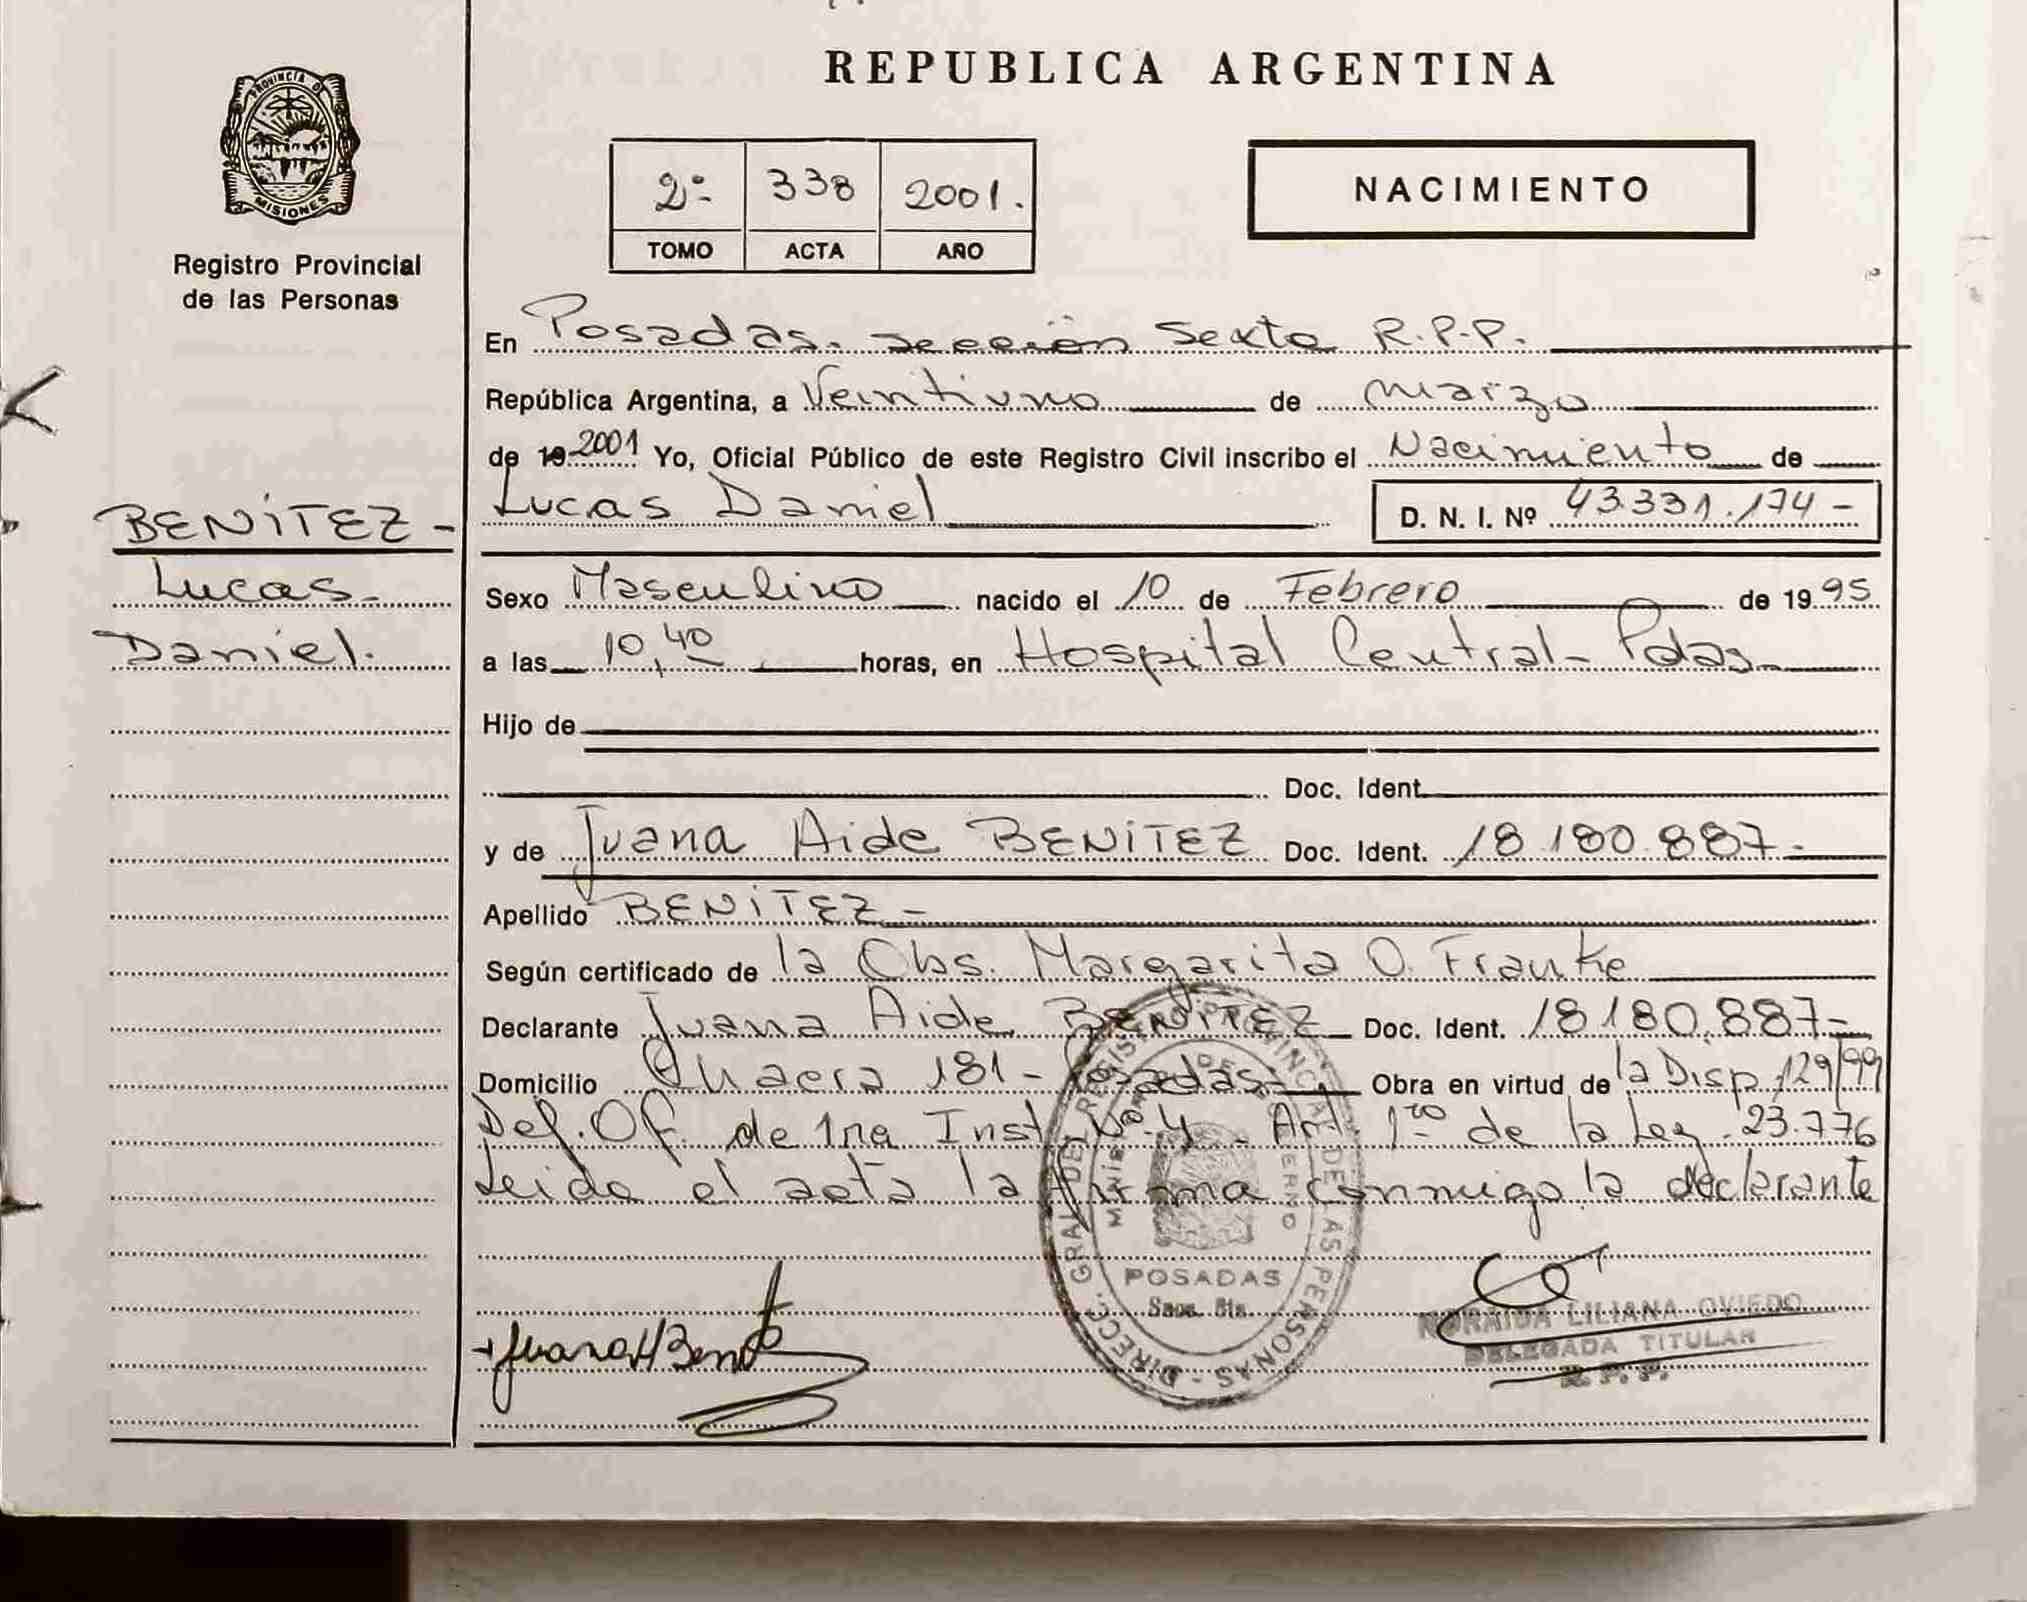 REPUBLICA ARGENTINA
PROVINCIA DE
MISIONES
Registro Provincial
de las Personas
2º- 338 2001.
TOMO ACTA AÑO
NACIMIENTO
En Posadas. sección Sexta R.P.P.
República Argentina, a Veintiuno de marzo
de 19 2001 Yo, Oficial Público de este Registro Civil inscribo el Nacimiento de
Lucas Daniel D. N. I. Nº 43.331.174-
BENITEZ-
Lucas-
Daniel.
Sexo Masculino nacido el 10 de Febrero de 1995
a las 10,40 horas, en Hospital Central-Pdas-
Hijo de
Doc. Ident.
y de Juana Aide BENITEZ Doc. Ident. 18.180.887-
Apellido BENITEZ-
Según certificado de la Obs. Margarita O. Franke
Declarante Juana Aide BENITEZ Doc. Ident. 18180.887-
Domicilio 181- Posadas- Obra en virtud de la Disp. 129/99
Def. Of. de 1ra Inst. Nº 4 - Art. 1ro de la Ley 23.776
Leida el acta la firma conmigo la declarante
DIRECC. GRAL. DEL REGISTRO PROVINCIAL DE LAS PERSONAS
POSADAS
Secc. 6ta.
Juana A Benitez
NORAIDA LILIANA OVIEDO
DELEGADA TITULAR
R. P. P.